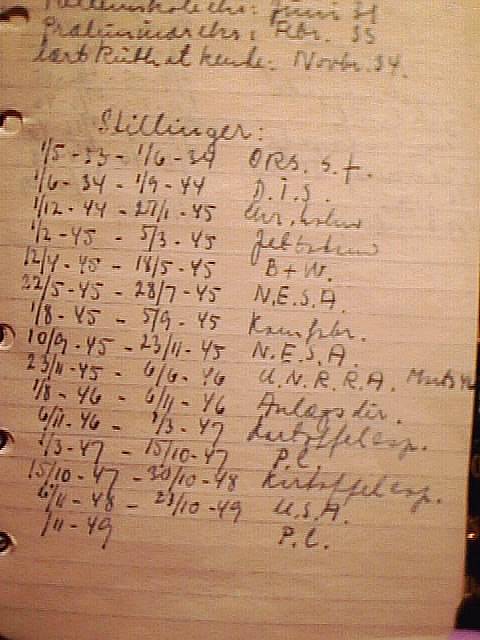 Mellemskoleeks: Juni 31
Præliminæreks: Febr. 35
Novbr. 34.
Stillinger:
1/5-33 - 1/6-34 ORS. S.f.
1/6-34 - 1/9-44 D.I.S.
1/12-44 - 27/1-45
1/2-45 - 5/3-45
12/4-45 - 18/5-45 B+W.
22/5-45 - 28/7-45 N.E.S.A.
1/8-45 - 5/9-45
10/9-45 - 23/11-45 N.E.S.A.
23/11-45 - 6/6-46 U.N.R.R.A.
1/8-46 - 6/11-46 Anlægsdir.
6/11-46 - 1/3-47 Kartoffelexp.
1/3-47 - 15/10-47 P.C.
15/10-47 - 30/10-48 Kartoffelexp.
6/11-48 - 23/10-49 U.S.A.
1/11-49 P.C.